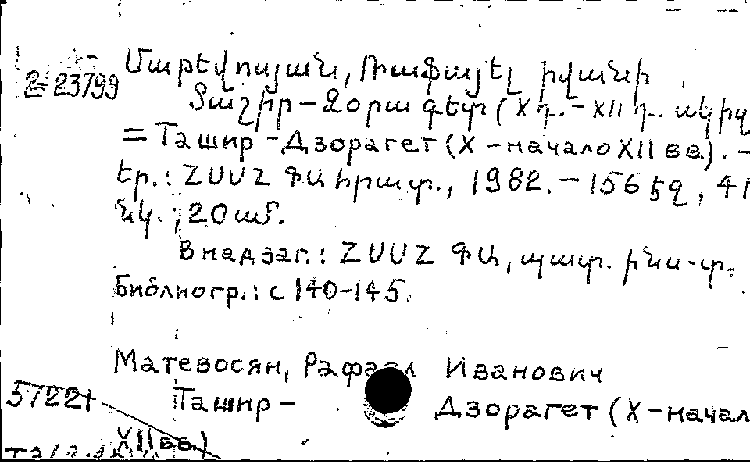 Մաթևոսյան, Ռաֆայել Իվանի
2-23799
Տաշիր-Ձորագետ (X դ.-XII դ. սկիզ
= Ташир-Дзорагет (X-начало XII вв). -
Եր.: ՀՍՍՀ ԳԱ հրատ., 1982. - 156 էջ, 41
նկ.; 20 սմ.
В надзаг.: ՀՍՍՀ ԳԱ, պատ. ինս-տ.
Библиогр.: с 140-145.
Матевосян, Рафаэл Иванович
57221
Ташир- Дзорагет (X-начал
XII вв)